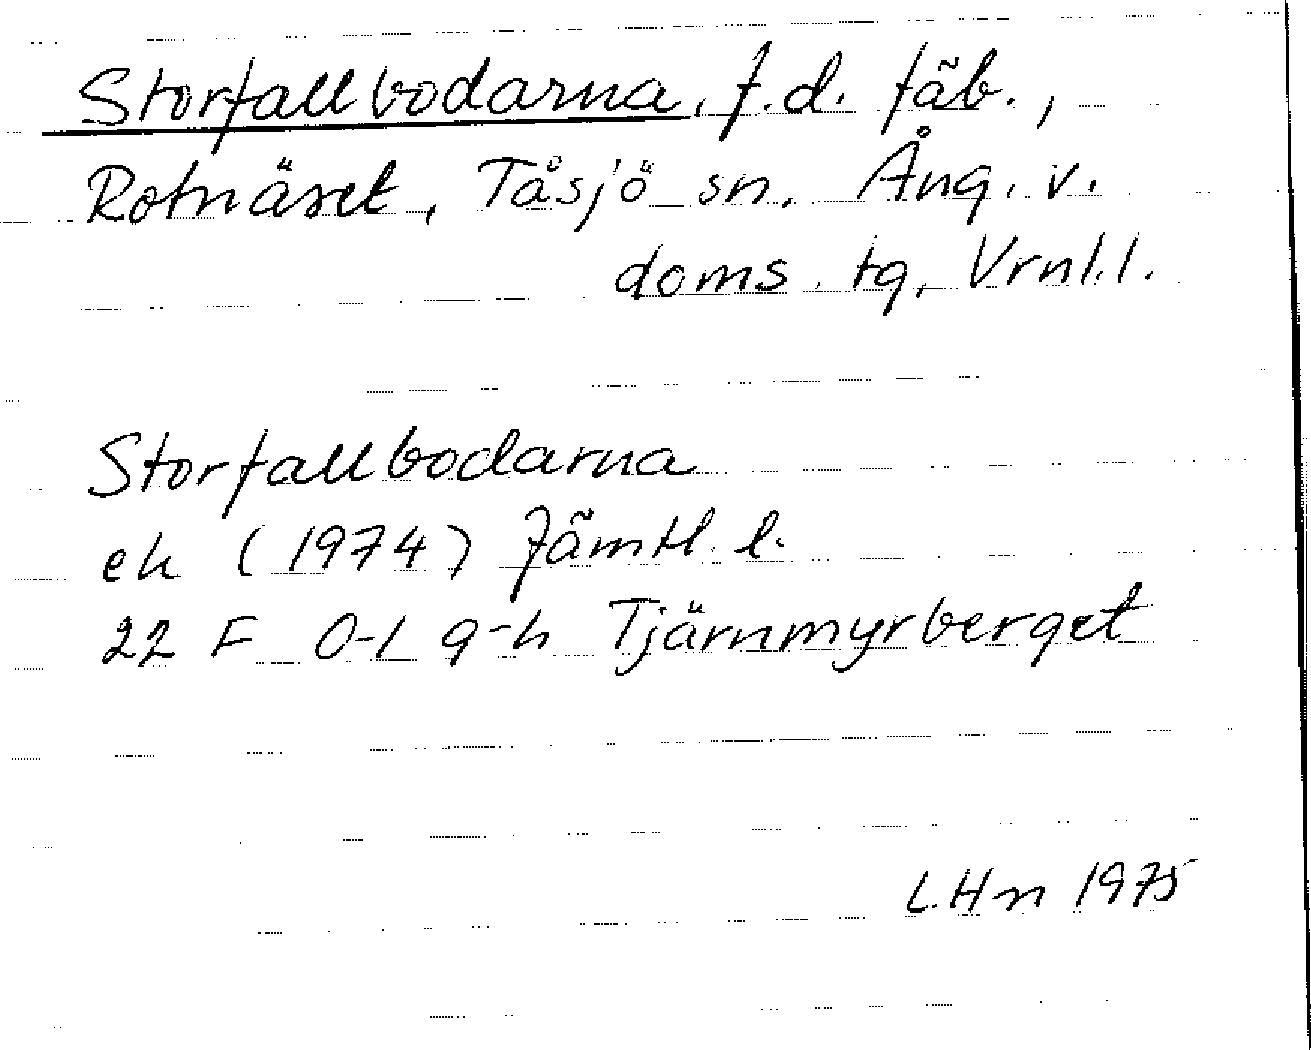 Storfallbodarna, f.d. fäb.,
Rotnäset, Tåsjö sn. Ång. v.
doms. tg, Vrnl.l.
Storfallbodarna
ek (1974) Jämtl. l.
22 F 0-1 g-h Tjärnmyrberget
L.Hn 1975